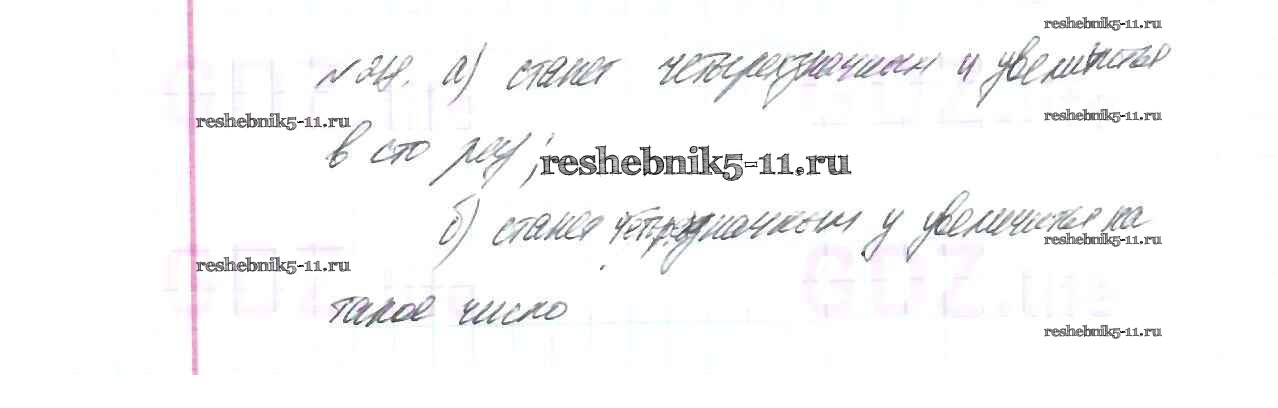 reshebnik5-11.ru
а) станет четырехзначным и увеличится
reshebnik5-11.ru reshebnik5-11.ru
в сто раз; reshebnik5-11.ru
б) станет четырехзначным и увеличится на
reshebnik5-11.ru
reshebnik5-11.ru
такое число
reshebnik5-11.ru